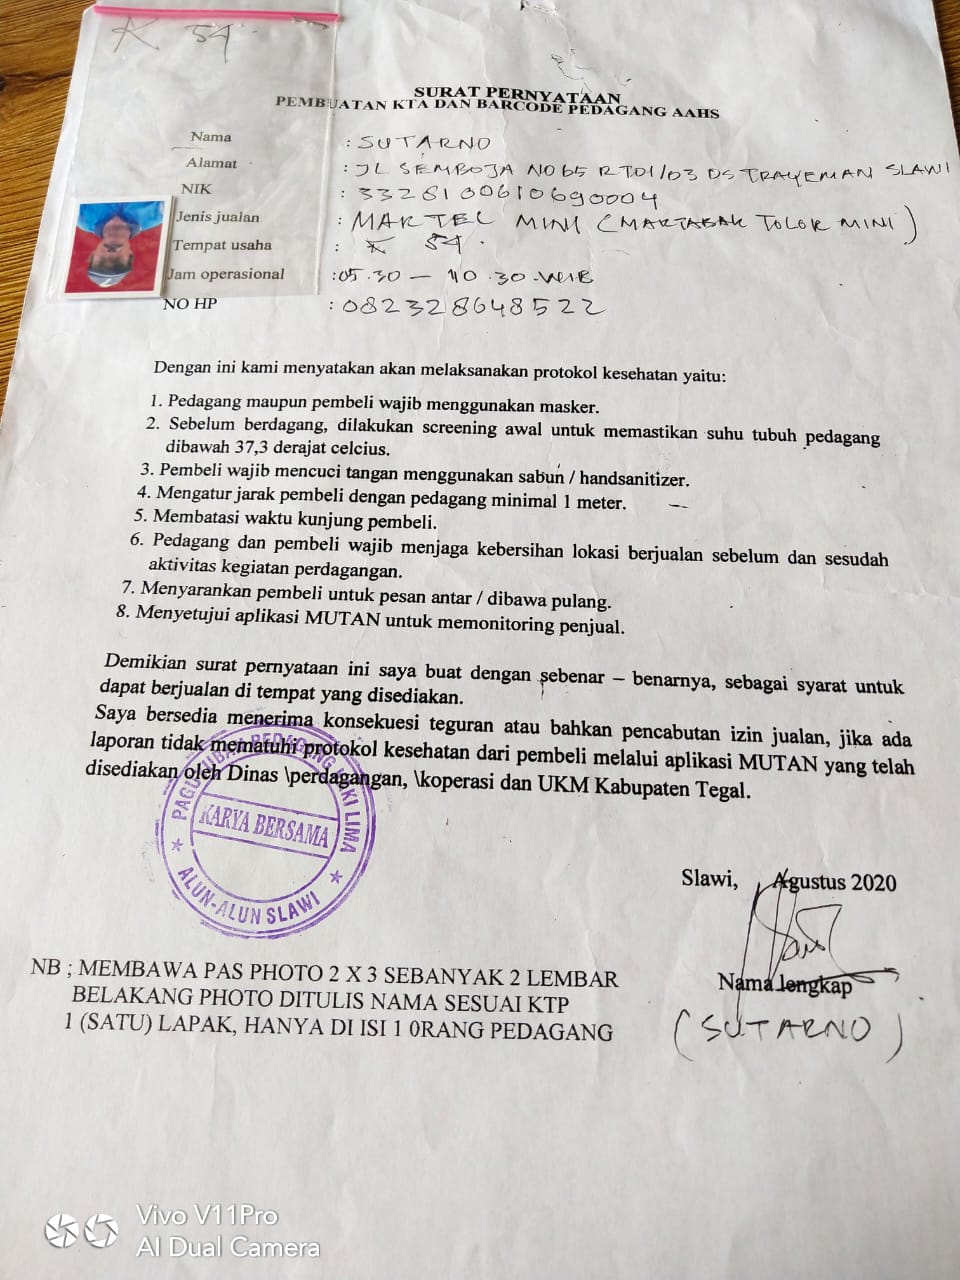 K 54
SURAT PERNYATAAN
PEMBUATAN KTA DAN BARCODE PEDAGANG AAHS
Nama : SUTARNO
Alamat : JL SEMBOJA NO 65 RT01/03 DS TRAYEMAN SLAWI
NIK : 3328100610690004
Jenis jualan : MARTEL MINI (MARTABAK TOLOR MINI)
Tempat usaha : K 54.
Jam operasional : 05.30 – 10.30 WIB
NO HP : 082328648522
Dengan ini kami menyatakan akan melaksanakan protokol kesehatan yaitu:
1. Pedagang maupun pembeli wajib menggunakan masker.
2. Sebelum berdagang, dilakukan screening awal untuk memastikan suhu tubuh pedagang
dibawah 37,3 derajat celcius.
3. Pembeli wajib mencuci tangan menggunakan sabun / handsanitizer.
4. Mengatur jarak pembeli dengan pedagang minimal 1 meter.
5. Membatasi waktu kunjung pembeli.
6. Pedagang dan pembeli wajib menjaga kebersihan lokasi berjualan sebelum dan sesudah
aktivitas kegiatan perdagangan.
7. Menyarankan pembeli untuk pesan antar / dibawa pulang.
8. Menyetujui aplikasi MUTAN untuk memonitoring penjual.
Demikian surat pernyataan ini saya buat dengan sebenar – benarnya, sebagai syarat untuk
dapat berjualan di tempat yang disediakan.
Saya bersedia menerima konsekuesi teguran atau bahkan pencabutan izin jualan, jika ada
laporan tidak mematuhi protokol kesehatan dari pembeli melalui aplikasi MUTAN yang telah
disediakan oleh Dinas \perdagangan, \koperasi dan UKM Kabupaten Tegal.
PAGUYUBAN PEDAGANG KAKI LIMA
KARYA BERSAMA
ALUN-ALUN SLAWI
Slawi, Agustus 2020
Nama lengkap
(SUTARNO)
NB ; MEMBAWA PAS PHOTO 2 X 3 SEBANYAK 2 LEMBAR
BELAKANG PHOTO DITULIS NAMA SESUAI KTP
1 (SATU) LAPAK, HANYA DI ISI 1 0RANG PEDAGANG
Vivo V11Pro
AI Dual Camera